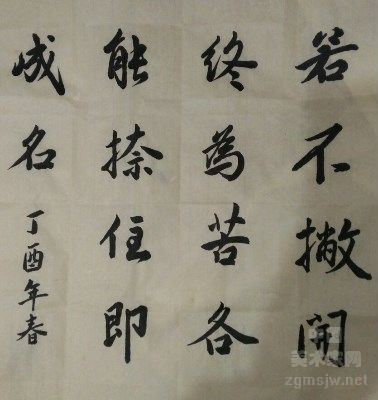 若不撇開
終為苦各
能捺住即
成名
丁酉年春
美术家网
zgmsjw.net